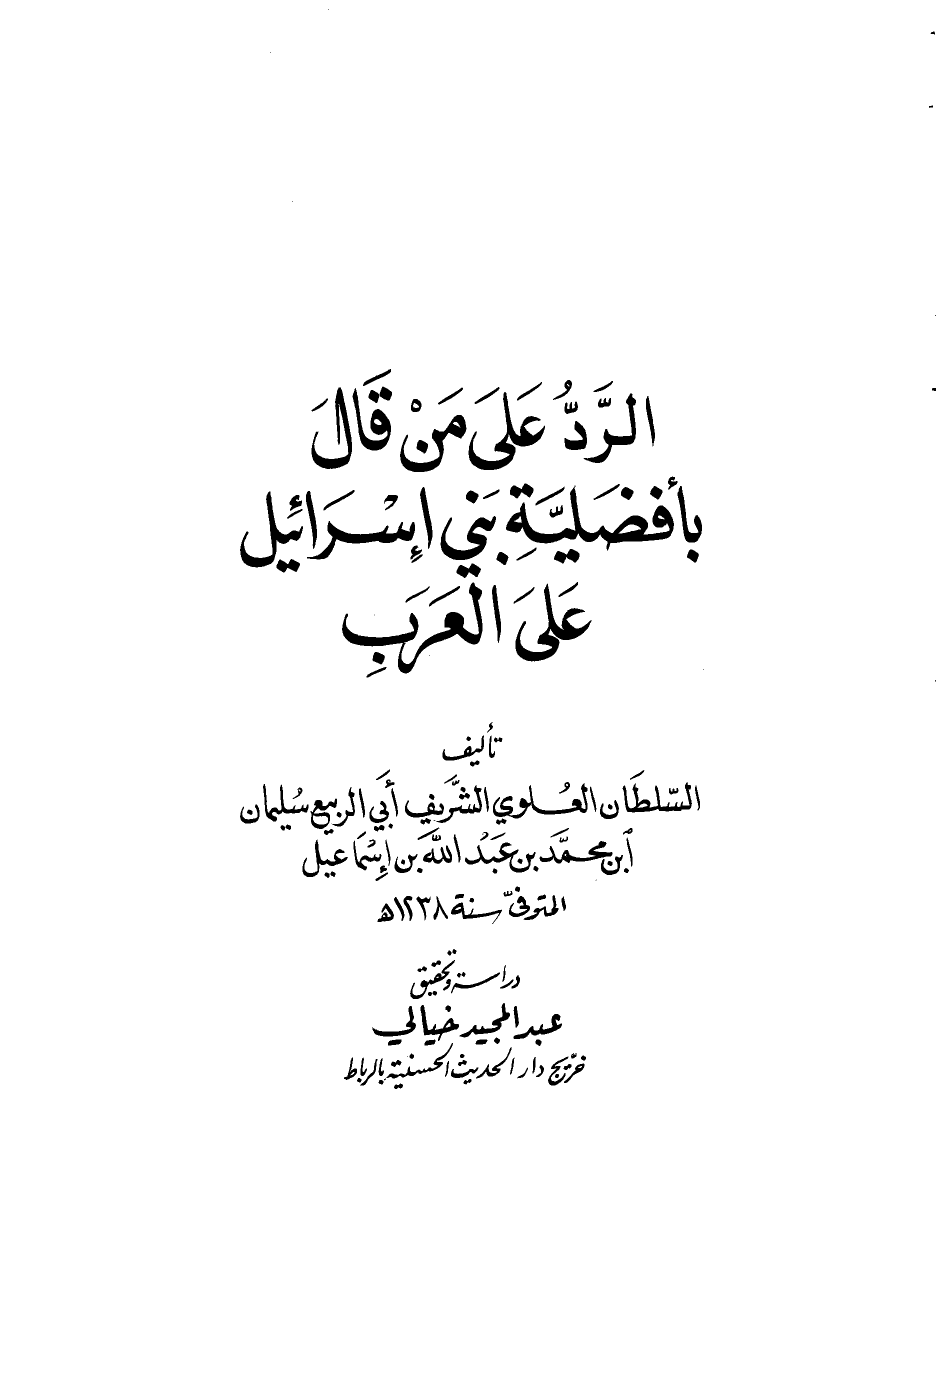 الرَّدُّ عَلَى مَنْ قَالَ
بأفضَليَّةِ بَني إسْرَائيل
عَلَى العَرَبِ
تأليف
السّلطَان العُلوي الشَّريف أبي الربيع سُليمان
ابن محمَّد بن عَبْد اللَّه بن إسْمَاعيل
المتوفىّ سنة ١٢٣٨ه
دراسة وتحقيق
عبد المجيد خيالي
خرّيج دار الحديث الحسنية بالرباط